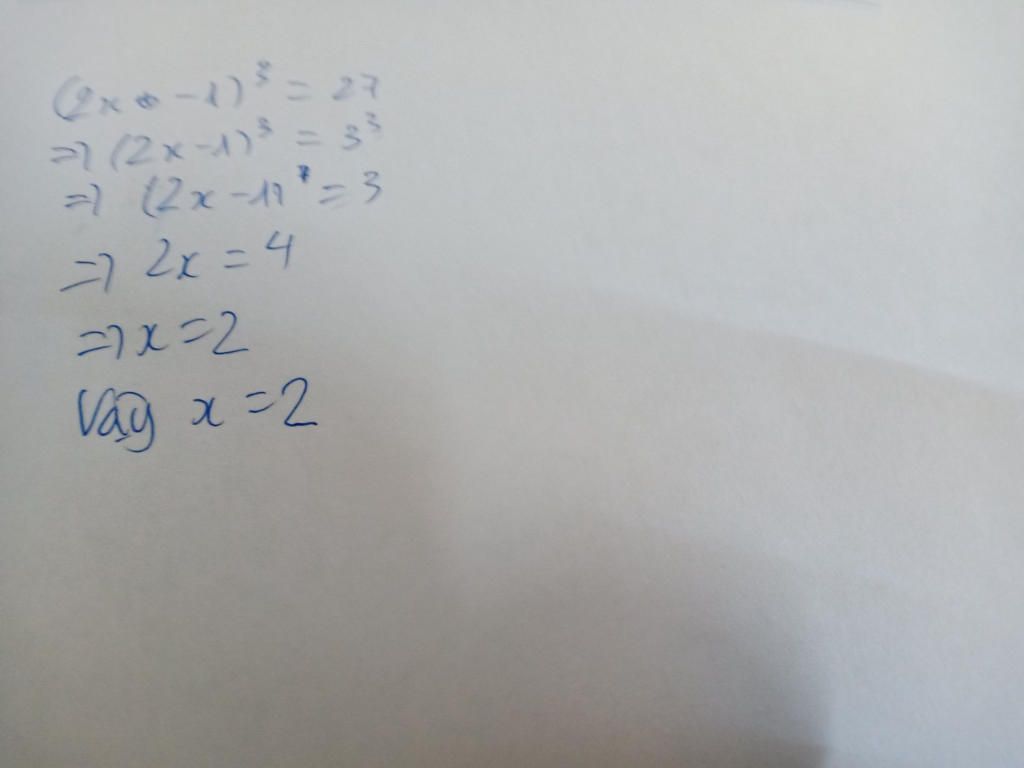 (2x - 1)³ = 27
=> (2x - 1)³ = 3³
=> (2x - 1) = 3
=> 2x = 4
=> x = 2
Vậy x = 2